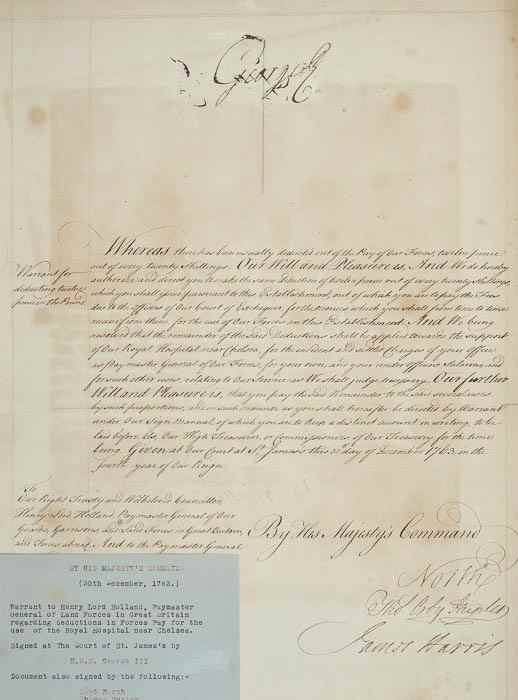 George R
Warrant for
deducting twelve
pence in the Pound
Whereas there has been usually deducted out of the Pay of Our Forces, twelve pence
out of every twenty Shillings, Our Will and Pleasure is, And We do hereby
authorize and direct you to make the same Deduction of twelve pence out of every twenty Shillings,
which you shall issue pursuant to this Establishment, out of which you are to pay the Fees
due to the Officers of Our Court of Exchequer, for the monies which you shall from time to time
receive from them, for the use of Our Forces on this Establishment. And We being
resolved that the remainder of the said Deductions shall be applied towards the support
of Our Royal Hospital near Chelsea, for the incident and settled Charges of your office
as Paymaster General of Our Forces, for your own, and your under Officers Salaries and
for such other uses, relating to Our Service as We shall judge necessary. Our further
Will and Pleasure is, that you pay the said Remainder to the said several uses
by such proportions, and in such manner as you shall hereafter be directed by Warrant
under Our Sign Manual, of which you are to keep a distinct account in writing, to be
laid before Us, Our High Treasurer, or Commissioners of Our Treasury for the time
being. Given at Our Court at St. James's this day of December 1763, in the
fourth year of Our Reign.
To
Our Right Trusty and Welbeloved Councillor
Henry Lord Holland, Paymaster General of Our
Guards, Garrisons and Land Forces in Great Britain,
and Forces abroad, And to the Paymaster General
By His Majesty's Command
North
James Harris
BY HIS MAJESTY'S COMMAND
(20th December, 1763.)
Warrant to Henry Lord Holland, Paymaster
General of Land Forces in Great Britain
regarding deductions in Forces Pay for the
use of the Royal Hospital near Chelsea.
Signed at The Court of St. James's by
H.M.K. George III
Document also signed by the following:-
Lord North